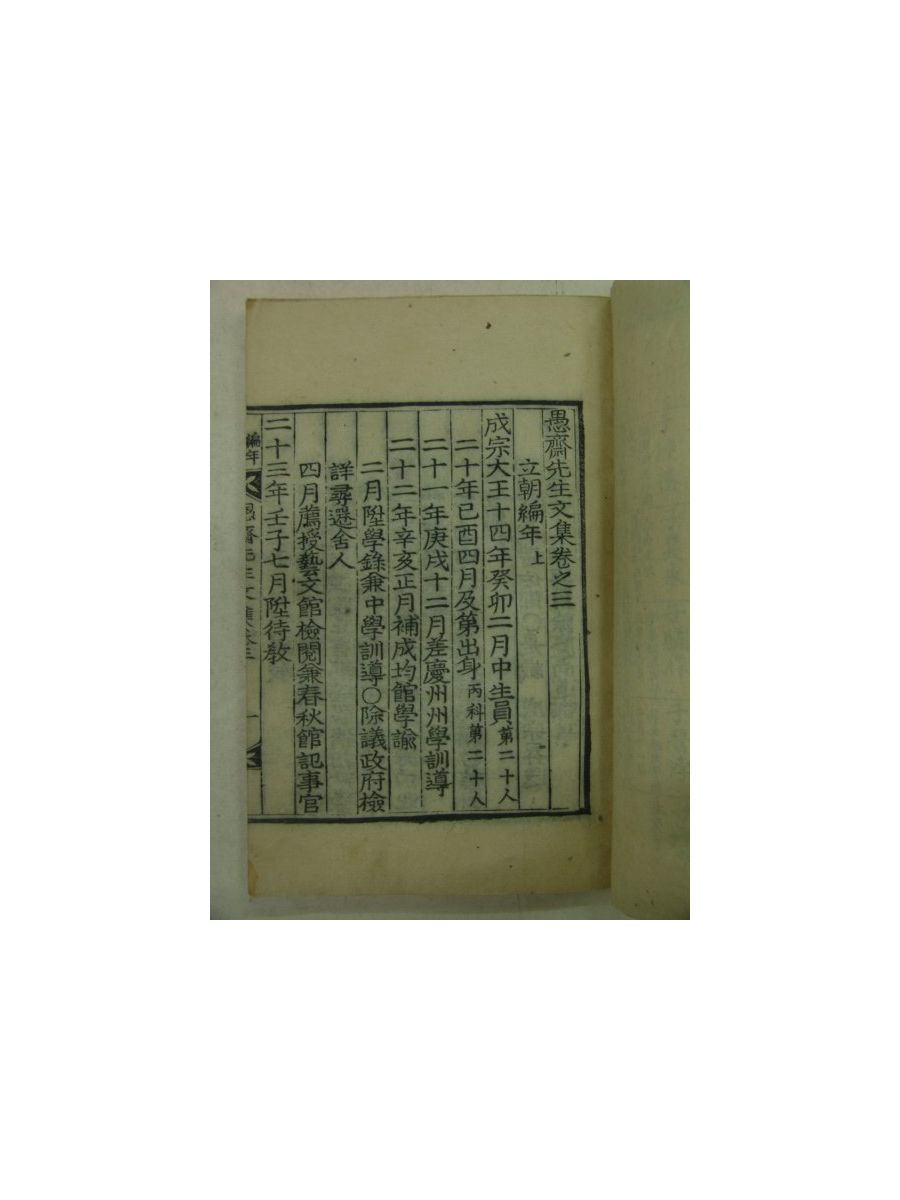 愚齋先生文集卷之三
立朝編年 上
成宗大王十四年癸卯二月中生員 第二十人
二十年己酉四月及第出身 丙科第二十人
二十一年庚戌十二月差慶州州學訓導
二十二年辛亥正月補成均館學諭
二月陞學錄兼中學訓導○除議政府檢
詳尋遷舍人
四月薦授藝文館檢閱兼春秋館記事官
二十三年壬子七月陞待敎
編年 愚齋先生文集卷三 一